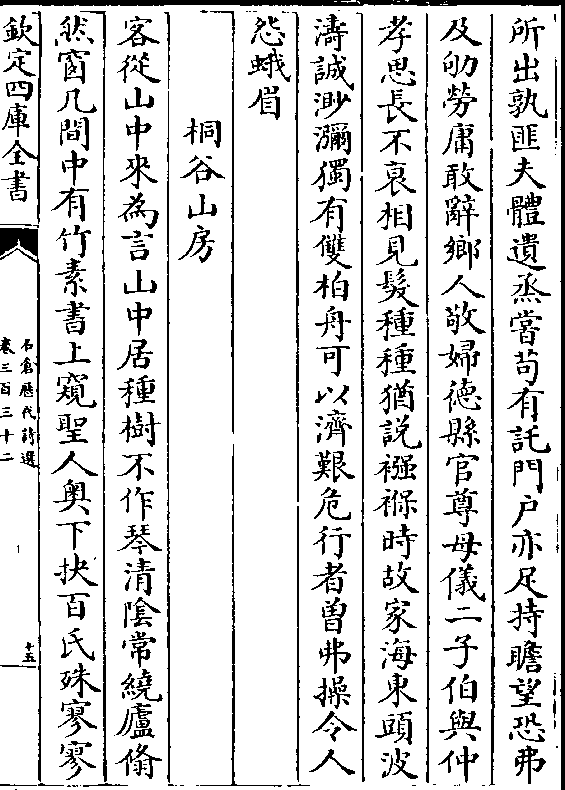 所出孰匪夫體遺烝嘗茍有託門户亦足持瞻望恐弗
及劬勞庸敢辭鄉人敬婦德縣官尊母儀二子伯與仲
孝思長不衰相見髮種種猶説襁褓時故家海東頭波
濤誠渺瀰獨有雙柏舟可以濟艱危行者曽弗操令人
怨蛾眉
桐谷山房
客從山中來為言山中居種樹不作琴清陰常繞廬翛
然窗几間中有竹素書上窺聖人奥下抉百氏殊寥寥
欽定四庫全書
石倉歴代詩選
卷三百三十二
十五